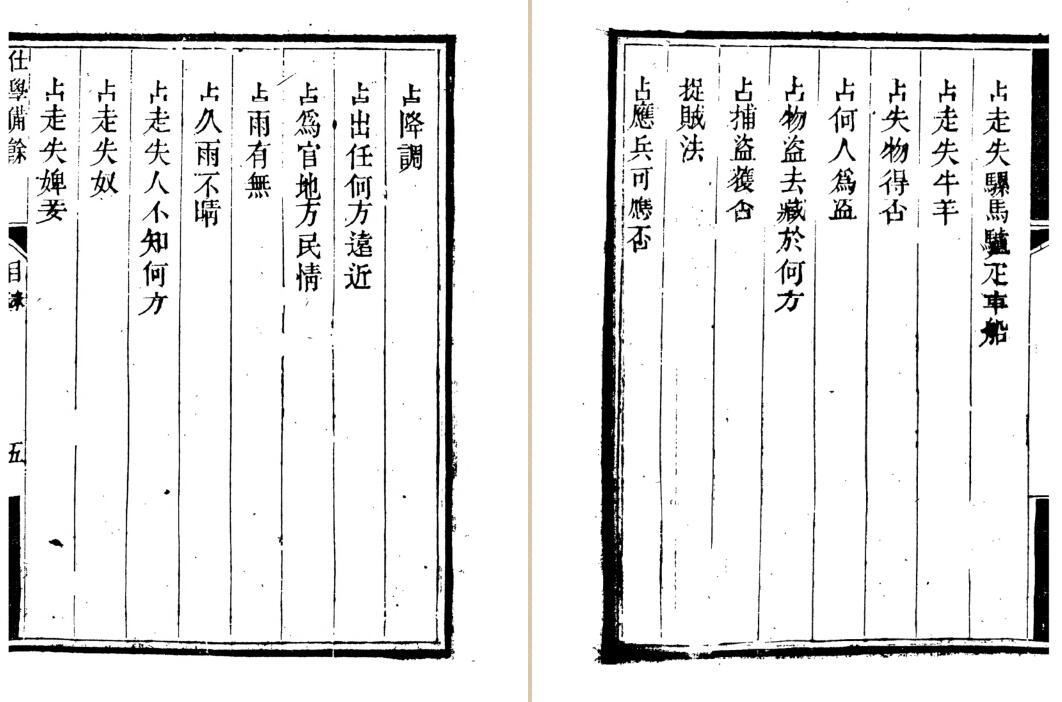 占降調
占出任何方遠近
占爲官地方民情
占雨有無
占久雨不晴
占走失人不知何方
占走失奴
占走失婢妾
仕學備餘
目錄
五
占走失騾馬驢疋車船
占走失牛羊
占失物得否
占何人爲盗
占物盗去藏於何方
占捕盗獲否
捉賊法
占應兵可應否